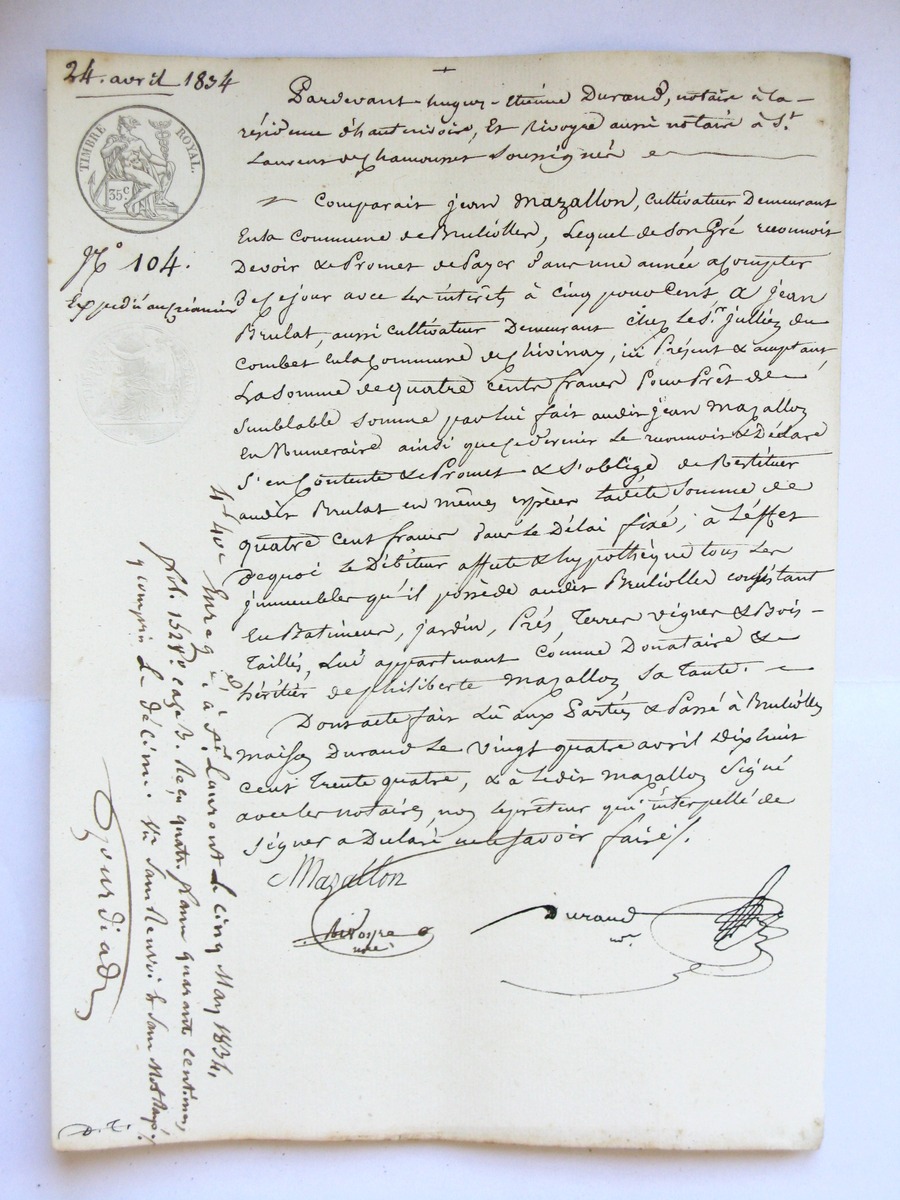 24. avril 1834
TIMBRE ROYAL.
35 c
N° 104.
Expedié au créancier
Pardevant hugues-Etiénne Durand, notaire à la
résidence d'hauterivoire, Et Rivoyre aussi notaire à St.
Laurent de Chamousset Soussignés
Comparait jean Mazallon, Cultivateur Demeurant
En la Commune de Brulliolles, Lequel de Son Gré reconnoit
Devoir & Promet de Payer dans une année a Compter
De Ce jour avec Les intérêts à cinq pour Cent, a jean
Brulat, aussi Cultivateur Demeurant chez Le Sr. julliez du
Combet En la Commune de Chivinay, ici Présent & acceptant,
La Somme de quatre cents francs Pour Prêt de
Semblable Somme par lui fait audit jean Mazalloz
En Numeraire ainsi que Ce dernier Le reconnoit & Déclare
S'en Contente & Promet & S'oblige de Restituer
audit Brulat en mêmes espèces ladite Somme de
quatre Cent francs dans Le Délai fixé; à L'éffet
Dequoi Le Débiteur affecte & hypothèque tous Les
jmmeubles qu'il possède audit Brulliolles consistant
En Batimens, jardin, Prés, Terres vignes & Bois
Taillés, Lui appartenant Comme Donataire &
héritier de philiberte Mazalloz Sa Tante.
Dont acte fait Lu aux Parties & Passé à Brulliolles
Maison Durand Le Vingt quatre avril Dix huit
Cent Trente quatre, & a Ledit Mazalloz Signé
avec Les notaires, non Le prêteur qui interpellé de
Signer a Déclaré ne le Savoir faire.
Mazallon
Rivoyre
nre
Durand
nre.
4f 40c Enreg.é à St. Laurent Le Cinq May 1834,
fol. 152 Vo. case 3. Reçu quatre francs quarante centimes,
y compris Le décime. Sans Renvoi & Sans Mot Rayé.
Gourdiad
D. T.